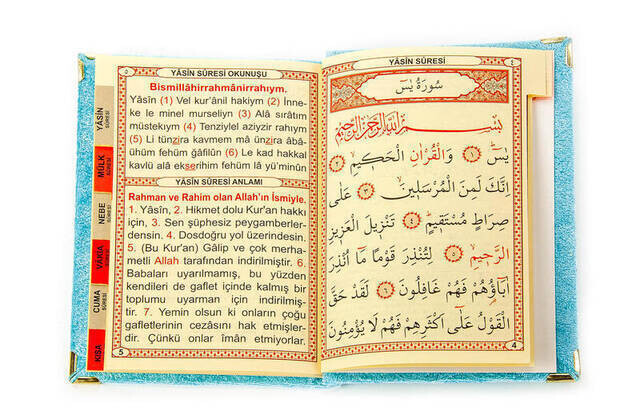 YÂSÎN SÛRESİ OKUNUŞU
٥
Bismillâhirrahmânirrahıym.
Yâsîn (1) Vel kur'ânil hakiym (2) İnne-
ke le minel murseliyn (3) Alâ sırâtım
müstekıym (4) Tenziylel aziyzir rahıym
(5) Li tünzira kavmem mâ ünzira âbâ-
ühüm fehüm ğâfilûn (6) Le kad hakkal
kavlü alâ ekserihim fehüm lâ yü'minûn
YÂSÎN SÛRESİ ANLAMI
Rahman ve Rahim olan Allah'ın İsmiyle.
1. Yâsîn, 2. Hikmet dolu Kur'an hakkı
için, 3. Sen şüphesiz peygamberler-
densin. 4. Dosdoğru yol üzerindesin.
5. (Bu Kur'an) Gâlip ve çok merha-
metli Allah tarafından indirilmiştir. 6.
Babaları uyarılmamış, bu yüzden
kendileri de gaflet içinde kalmış bir
toplumu uyarman için indirilmiş-
tir. 7. Yemin olsun ki onların çoğu
gafletlerinin cezâsını hak etmişler-
dir. Çünkü onlar îmân etmiyorlar.
5
YÂSİN
SÛRESİ
MÜLK
SÛRESİ
NEBE
SÛRESİ
VAKIA
SÛRESİ
CUMA
SÛRESİ
KISA
YÂSÎN SÛRESİ
٤
سُورَةُ يٰسٓ
بِسْمِ اللّٰهِ الرَّحْمٰنِ الرَّحِيمِ
يٰسٓ ١ وَالْقُرْاٰنِ الْحَكِيمِ ٢
اِنَّكَ لَمِنَ الْمُرْسَلِينَ ٣ عَلٰى
صِرَاطٍ مُسْتَقِيمٍ ٤ تَنْزِيلَ الْعَزِيزِ
الرَّحِيمِ ٥ لِتُنْذِرَ قَوْمًا مَٓا اُنْذِرَ
اٰبَٓاؤُهُمْ فَهُمْ غَافِلُونَ ٦ لَقَدْ حَقَّ
الْقَوْلُ عَلٰٓى اَكْثَرِهِمْ فَهُمْ لَا يُؤْمِنُونَ
4